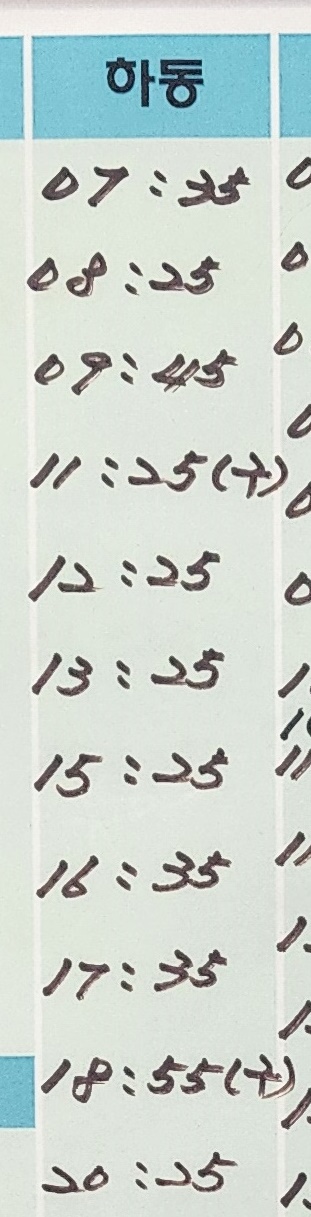 하동
07:35
08:25
09:45
11:25(구)
12:25
13:25
15:25
16:35
17:35
18:55(구)
20:25